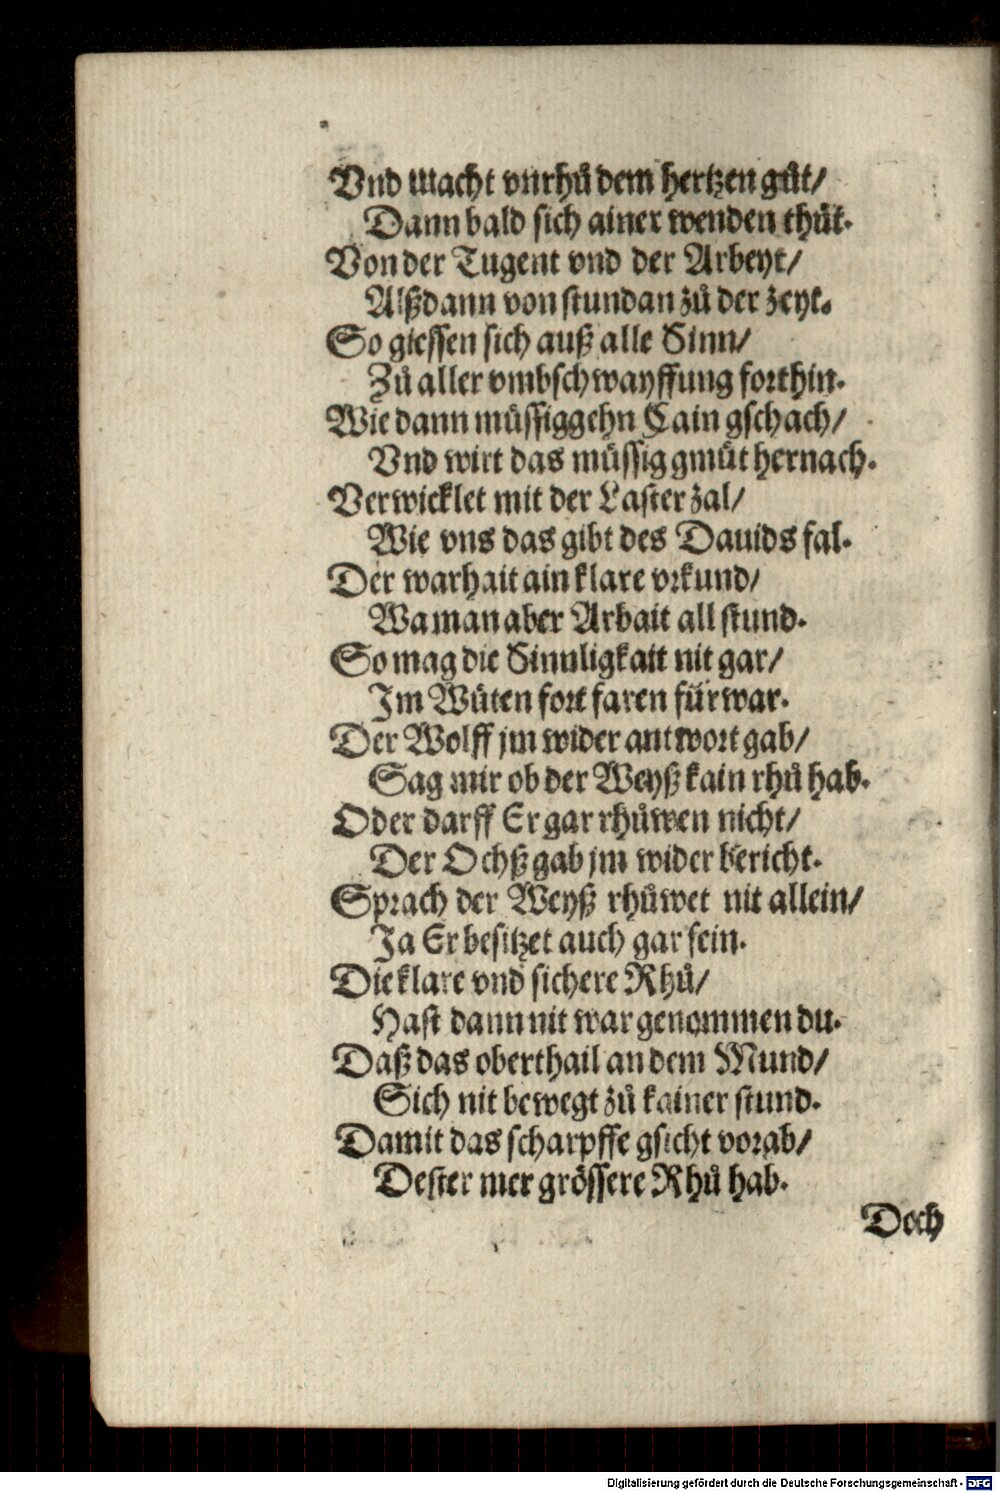 Vnd macht vnrhů dem hertzen gůt/
Dann bald sich ainer wenden thůt.
Von der Tugent vnd der Arbeyt/
Alßdann von stundan zů der zeyt.
So giessen sich auß alle Sinn/
Zů aller vmbschwayffung forthin.
Wie dann müssiggehn Cain gschach/
Vnd wirt das müssig gmüt hernach.
Verwicklet mit der Laster zal/
Wie vns das gibt des Dauids fal.
Der warhait ain klare vrkund/
Wa man aber Arbait all stund.
So mag die Sinnligkait nit gar/
Im Wüten fort faren fürwar.
Der Wolff jm wider antwort gab/
Sag mir ob der Weyß kain rhů hab.
Oder darff Er gar rhůwen nicht/
Der Ochß gab jm wider bericht.
Sprach der Weyß rhůwet nit allein/
Ja Er besitzet auch gar fein.
Die klare vnd sichere Rhů/
Hast dann nit war genommen du.
Daß das oberthail an dem Mund/
Sich nit bewegt zů kainer stund.
Damit das scharpffe gsicht vorab/
Dester mer grössere Rhů hab.
Doch
Digitalisierung gefördert durch die Deutsche Forschungsgemeinschaft - DFG